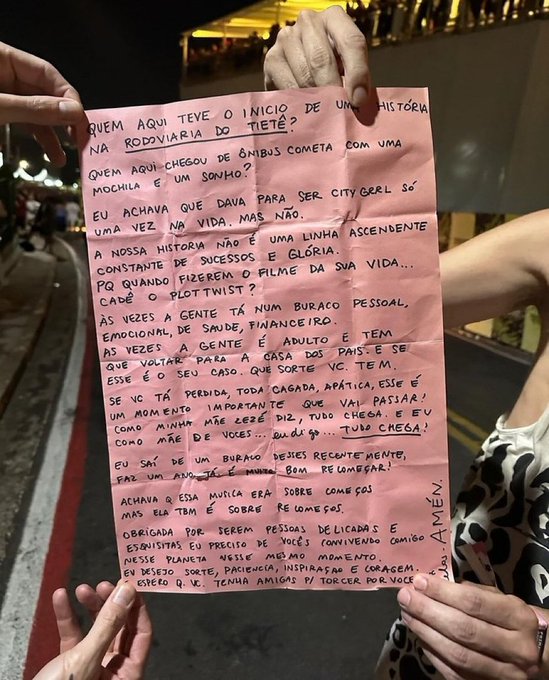 QUEM AQUI TEVE O INICIO DE UMA HISTÓRIA
NA RODOVIARIA DO TIETÊ?
QUEM AQUI CHEGOU DE ÔNIBUS COMETA COM UMA
MOCHILA E UM SONHO?
EU ACHAVA QUE DAVA PARA SER CITY GRRL SÓ
UMA VEZ NA VIDA. MAS NÃO.
A NOSSA HISTORIA NÃO É UMA LINHA ASCENDENTE
CONSTANTE DE SUCESSOS E GLÓRIA.
PQ QUANDO FIZEREM O FILME DA SUA VIDA...
CADÊ O PLOT TWIST?
ÀS VEZES A GENTE TÁ NUM BURACO PESSOAL,
EMOCIONAL, DE SAUDE, FINANCEIRO.
AS VEZES A GENTE É ADULTO E TEM
QUE VOLTAR PARA A CASA DOS PAIS. E SE
ESSE É O SEU CASO. QUE SORTE VC. TEM.
SE VC TÁ PERDIDA, TODA CAGADA, APÁTICA, ESSE É
UM MOMENTO IMPORTANTE QUE VAI PASSAR!
COMO MINHA MÃE ZEZÉ DIZ, TUDO CHEGA. E EU
COMO MÃE DE VOCES... eu digo... TUDO CHEGA!
EU SAÍ DE UM BURACO DESSES RECENTEMENTE,
FAZ UM ANO JÁ. É MUITO BOM RECOMEÇAR!
ACHAVA Q ESSA MUSICA ERA SOBRE COMEÇOS
MAS ELA TBM É SOBRE RECOMEÇOS.
OBRIGADA POR SEREM PESSOAS DELICADAS E
ESQUISITAS. EU PRECISO DE VOCÊS CONVIVENDO COMIGO
NESSE PLANETA NESSE MESMO MOMENTO.
EU DESEJO SORTE, PACIENCIA, INSPIRAÇÃO E CORAGEM.
ESPERO Q. VC. TENHA AMIGAS P/ TORCER POR VOCE
AMÉN.